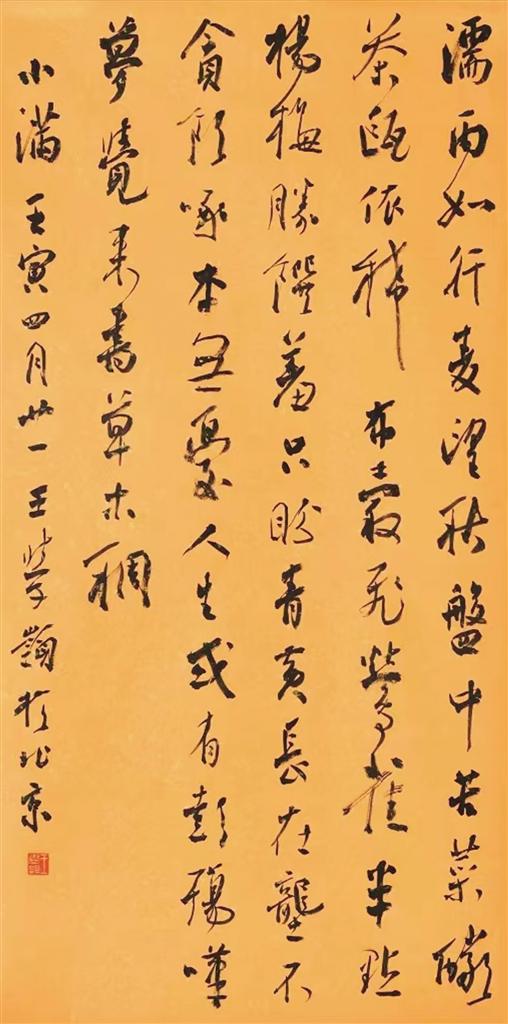 濡雨如行麦望秋盤中苦菜釅
茶甌依稀 布穀飛鶯雀半點
楊梅勝饌羞只盼青黃長在壟不
貪飲啄本無憂人生或有彭殤嘆
夢覺来書草木稠
小滿壬寅四月廿一王學嶺於北京